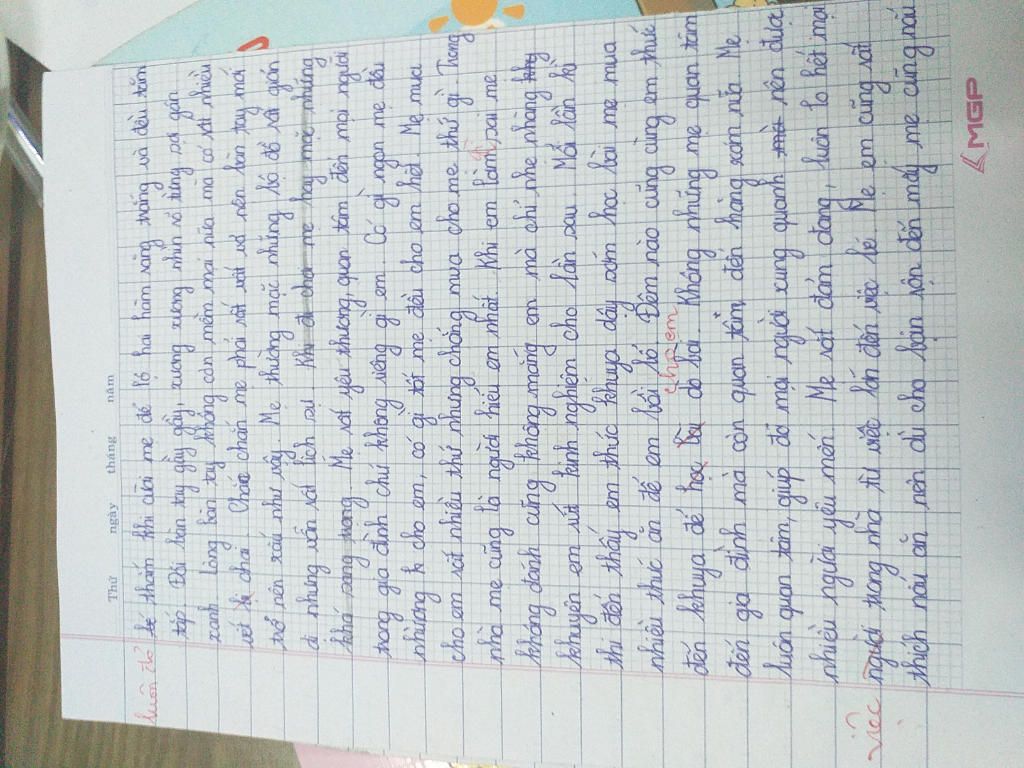 Thứ ngày tháng năm
luôn đỏ
kẻ thắm thi cười mẹ để lộ hai hàm răng trắng và đều tăm
tắp. Đôi bàn tay gầy gầy, xương xương nhìn rõ từng sợi gân
xanh. Lòng bàn tay không còn mềm mại nữa mà có rất nhiều
vết chai. Chắc chắn mẹ phải rất vất vả nên bàn tay mới
trở nên xấu như vậy. Mẹ thường mặc những bộ đồ rất giản
dị nhưng vẫn rất lịch sự. Khi đi chơi mẹ hay mặc những
khá sang trọng. Mẹ rất yêu thương, quan tâm đến mọi người
trong gia đình chứ không riêng gì em. Có gì ngon mẹ đều
nhường k cho em, có gì tốt mẹ đều cho em hết. Mẹ mua
cho em rất nhiều thứ nhưng chẳng mua cho mẹ thứ gì. Trong
nhà mẹ cũng là người hiểu em nhất. Khi em làm sai mẹ
gì
không đánh cũng không mắng em mà chỉ nhẹ nhàng
khuyên em rút kinh nghiệm cho lần sau. Mỗi lần kì
thi đến thấy em thức khuya dậy sớm học bài mẹ mua
nhiều thức ăn để em bồi bổ. Đêm nào cũng cùng em thức
cho em
đến khuya để học bài dò bài. Không những mẹ quan tâm
đến gia đình mà còn quan tâm đến hàng xóm nữa. Mẹ
luôn quan tâm, giúp đỡ mọi người xung quanh mà nên được
nhiều người yêu mến. Mẹ rất đảm đang, luôn lo hết mọi
việc
người trong nhà từ việc lớn đến việc bé. Mẹ em cũng rất
thích nấu ăn nên dù cho bận rộn đến mấy mẹ cũng nấu
MGP